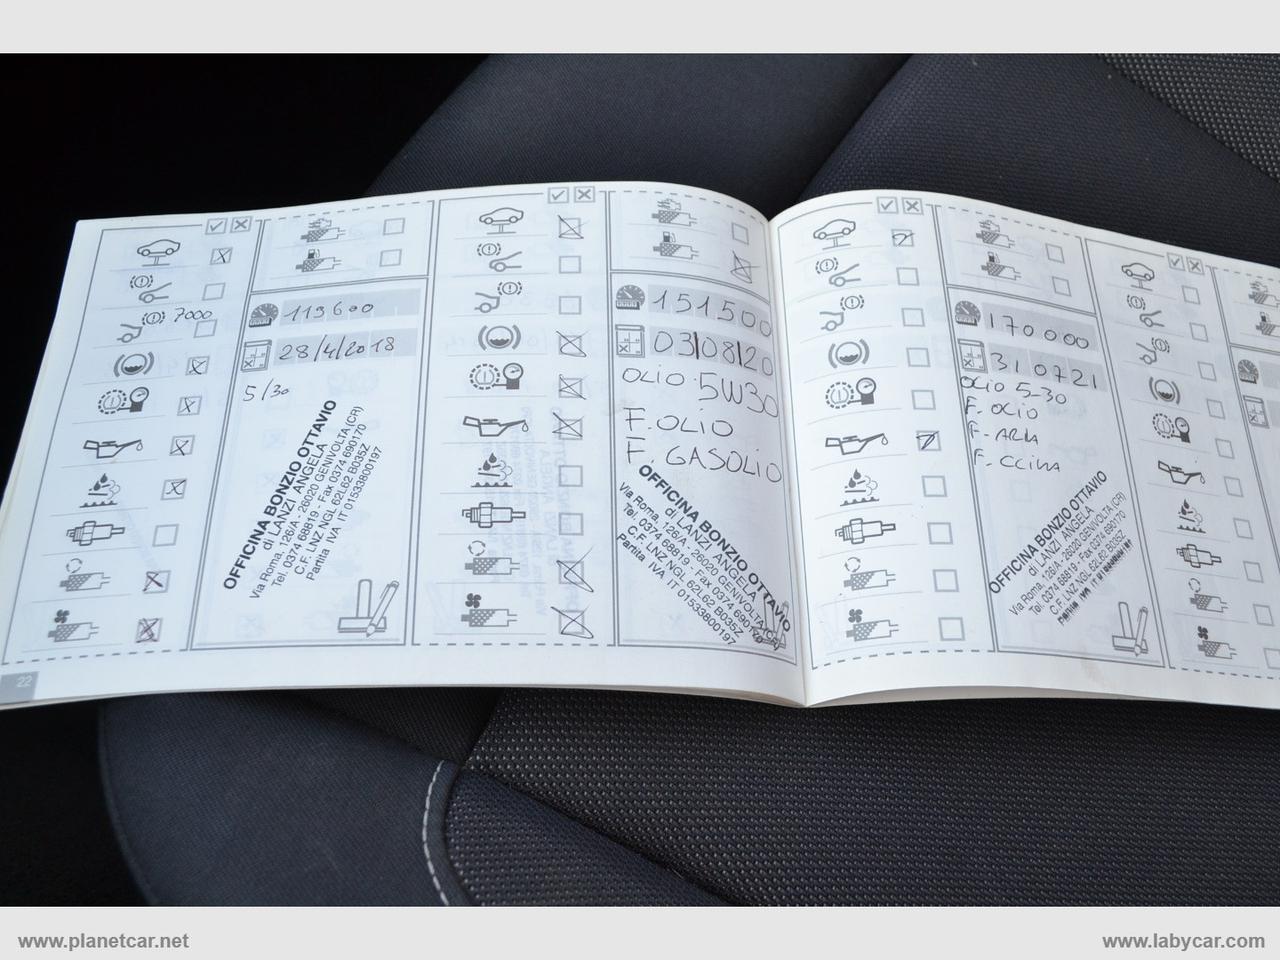 7000
119600
28/4/2018
5/30
OFFICINA BONZIO OTTAVIO
di LANZI ANGELA
Via Roma, 126/A - 26020 GENIVOLTA (CR)
Tel. 0374 68819 - Fax 0374 690170
C.F. LNZ NGL 62L62 B035Z
Partita IVA IT 01533800197
22
151500
03/08/20
OLIO 5W30
F. OLIO
F. GASOLIO
OFFICINA BONZIO OTTAVIO
di LANZI ANGELA
Via Roma, 126/A - 26020 GENIVOLTA (CR)
Tel. 0374 68819 - Fax 0374 690170
C.F. LNZ NGL 62L62 B035Z
Partita IVA IT 01533800197
170000
310721
OLIO 5-30
F. OLIO
F. ARIA
OFFICINA BONZIO OTTAVIO
di LANZI ANGELA
Via Roma, 126/A - 26020 GENIVOLTA (CR)
Tel. 0374 68819 - Fax 0374 690170
C.F. LNZ NGL 62L62 B035Z
www.planetcar.net
www.labycar.com